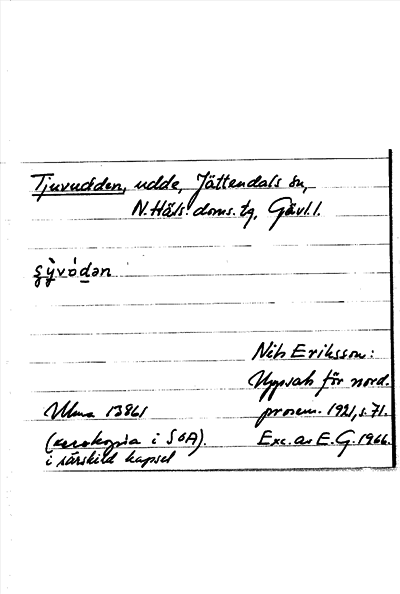 Tjuvudden, udde, Jättendals sn,
N. Häls. doms. tg, Gävl. l.
şỳvódən
Nils Eriksson:
Uppsats för nord.
Ulma 13861 prosem. 1921, s. 71.
(xerokopia i SOA). Exc. av E. G. 1966.
i särskild kapsel